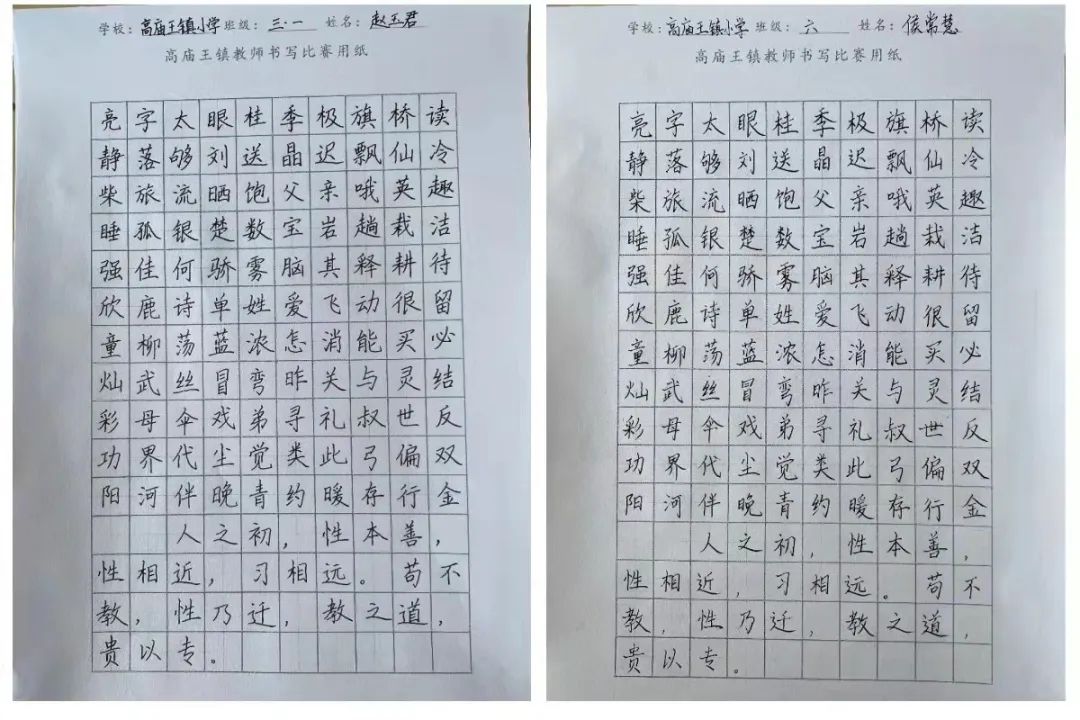 学校：高庙王镇小学 班级：三·一 姓名：赵玉君
高庙王镇教师书写比赛用纸
亮字太眼桂季极旗桥读
静落够刘送晶迟飘仙冷
柴旅流晒饱父亲哦英趣
睡孤银楚数宝岩趟栽洁
强佳何骄雾脑其释耕待
欣鹿诗单姓爱飞动很留
童柳荡蓝浓怎消能买必
灿武丝冒弯昨关与灵结
彩母伞戏弟寻礼叔世反
功界代尘觉类此弓偏双
阳河伴晚青约暖存行金
人之初，性本善，
性相近，习相远。苟不
教，性乃迁，教之道，
贵以专。
学校：高庙王镇小学 班级：六 姓名：侯常慧
高庙王镇教师书写比赛用纸
亮字太眼桂季极旗桥读
静落够刘送晶迟飘仙冷
柴旅流晒饱父亲哦英趣
睡孤银楚数宝岩趟栽洁
强佳何骄雾脑其释耕待
欣鹿诗单姓爱飞动很留
童柳荡蓝浓怎消能买必
灿武丝冒弯昨关与灵结
彩母伞戏弟寻礼叔世反
功界代尘觉类此弓偏双
阳河伴晚青约暖存行金
人之初，性本善，
性相近，习相远。苟不
教，性乃迁，教之道，
贵以专。